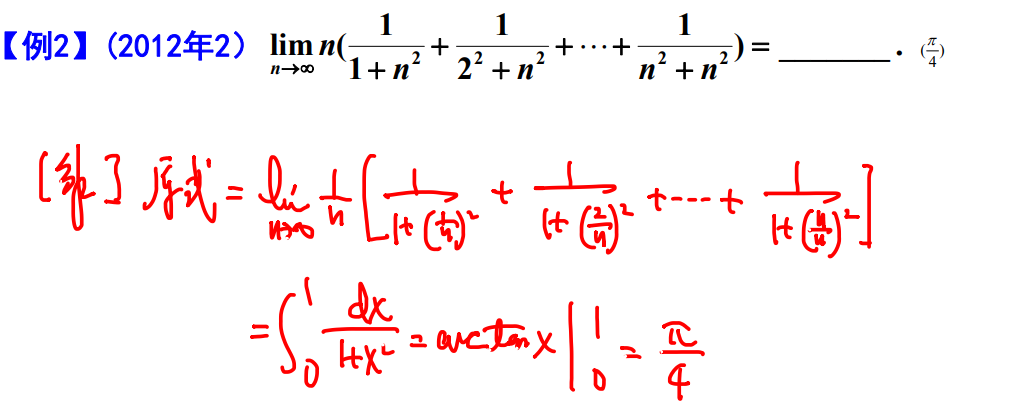 【例2】(2012年2) lim_{n→∞} n(1/(1+n²) + 1/(2²+n²) + ⋯ + 1/(n²+n²)) = ______. (π/4)
[解] 原式 = lim_{n→∞} 1/n [1/(1+(1/n)²) + 1/(1+(2/n)²) + ⋯ + 1/(1+(n/n)²)]
= ∫₀¹ dx/(1+x²) = arctan x |₀¹ = π/4